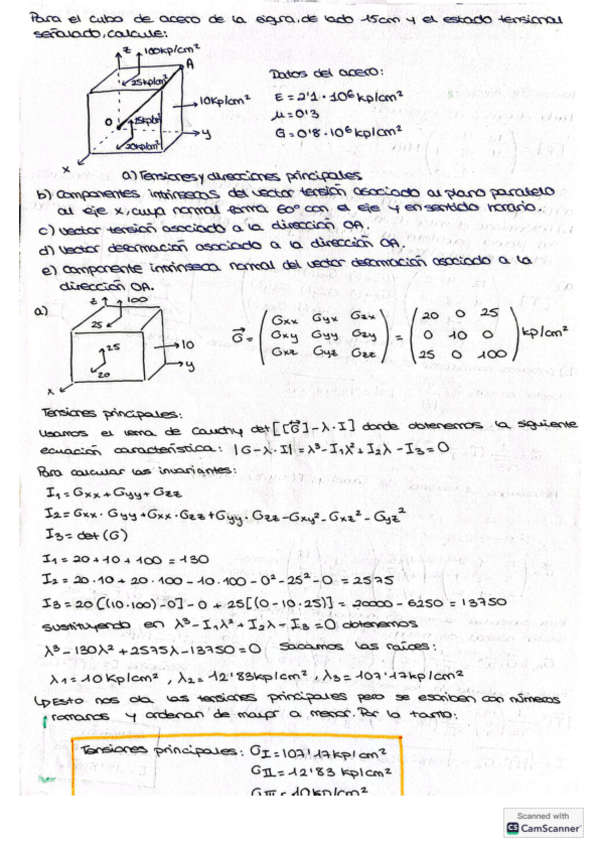 Para el cubo de acero de la figura, de lado 15cm y el estado tensional
señalado, calcule:
z 100kp/cm²
A
25kp/cm²
Datos del acero:
10kp/cm²
E = 2'1 · 10⁶ kp/cm²
O 25kp/cm²
μ = 0'3
y
20kp/cm²
G = 0'8 · 10⁶ kp/cm²
x
a) Tensiones y direcciones principales
b) Componentes intrínsecas del vector tensión asociado al plano paralelo
al eje x, cuya normal forma 60° con el eje y en sentido horario.
c) vector tensión asociado a la dirección OA.
d) vector deformación asociado a la dirección OA.
e) componente intrínseca normal del vector deformación asociado a la
dirección OA.
a) z 100
25
25
10
y
20
x
G = ( Gxx Gyx Gzx ; Gxy Gyy Gzy ; Gxz Gyz Gzz ) = ( 20 0 25 ; 0 10 0 ; 25 0 100 ) kp/cm²
Tensiones principales:
Usamos el tema de Cauchy det[[G]-λ·I] donde obtenemos la siguiente
ecuación característica: |G-λ·I| = λ³-I₁λ²+I₂λ-I₃=0
Para calcular las invariantes:
I₁ = Gxx+Gyy+Gzz
I₂ = Gxx·Gyy+Gxx·Gzz+Gyy·Gzz-Gxy²-Gxz²-Gyz²
I₃ = det(G)
I₁ = 20+10+100 = 130
I₂ = 20·10 + 20·100 - 10·100 - 0² - 25² - 0 = 2575
I₃ = 20[(10·100)-0] - 0 + 25[(0-10·25)] = 20000 - 6250 = 13750
sustituyendo en λ³-I₁λ²+I₂λ-I₃=0 obtenemos
λ³-130λ²+2575λ-13750=0 Sacamos las raíces:
λ₁ = 10 kp/cm², λ₂ = 12'83kp/cm², λ₃ = 107'17kp/cm²
↳ Esto nos da las tensiones principales pero se escriben con números
romanos y ordenan de mayor a menor. Por lo tanto:
Tensiones principales: G_I = 107'17 kp/cm²
G_II = 12'83 kp/cm²
G_III = 10kp/cm²
Scanned with
CS CamScanner